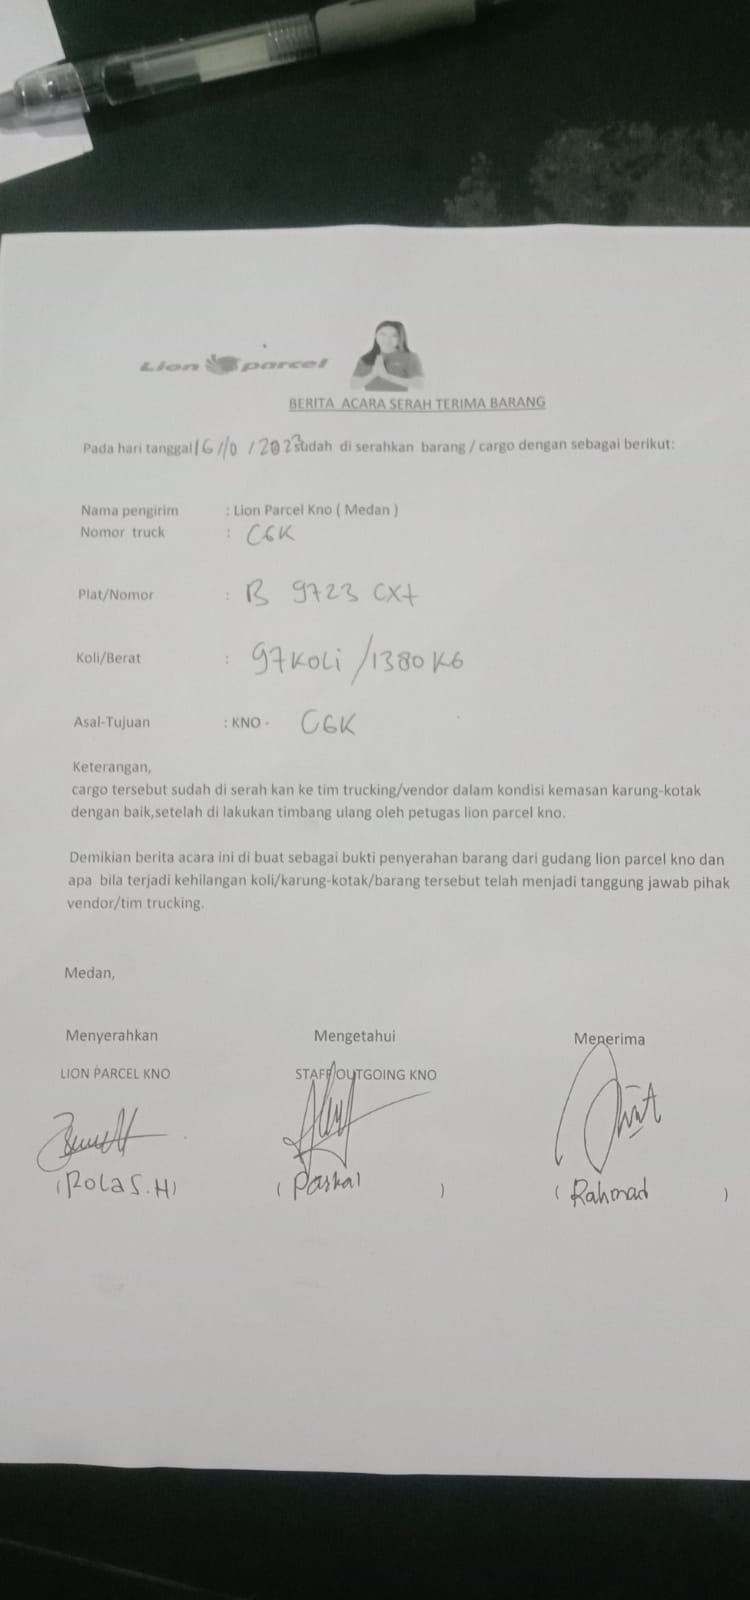 Lion parcel
BERITA ACARA SERAH TERIMA BARANG
Pada hari tanggal 16/10/2023 sudah di serahkan barang / cargo dengan sebagai berikut:
Nama pengirim : Lion Parcel Kno ( Medan )
Nomor truck : CGK
Plat/Nomor : B 9723 CXt
Koli/Berat : 97 KOLi / 1380 KG
Asal-Tujuan : KNO - CGK
Keterangan,
cargo tersebut sudah di serah kan ke tim trucking/vendor dalam kondisi kemasan karung-kotak
dengan baik,setelah di lakukan timbang ulang oleh petugas lion parcel kno.
Demikian berita acara ini di buat sebagai bukti penyerahan barang dari gudang lion parcel kno dan
apa bila terjadi kehilangan koli/karung-kotak/barang tersebut telah menjadi tanggung jawab pihak
vendor/tim trucking.
Medan,
Menyerahkan Mengetahui Menerima
LION PARCEL KNO STAFF OUTGOING KNO
(Rola S.H) ( Paskal ) ( Rahmad )